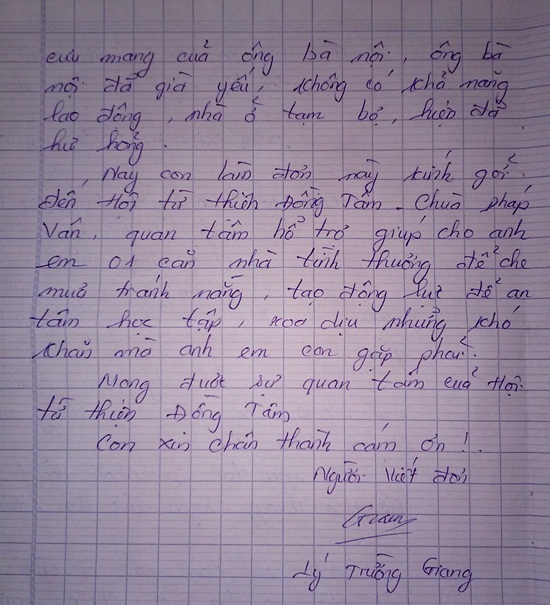 cưu mang của ông bà nội, ông bà
nội đã già yếu, không có khả năng
lao động, nhà ở tạm bợ, hiện đã
hư hỏng.
Nay con làm đơn này kính gởi
đến Hội từ thiện Đồng Tâm - Chùa Pháp
Vân, quan tâm hổ trợ giúp cho anh
em 01 căn nhà tình thương để che
mưa tránh nắng, tạo động lực để an
tâm học tập, xoa dịu những khó
khăn mà anh em con gặp phải.
Mong được sự quan tâm của Hội
từ thiện Đồng Tâm
Con xin chân thành cám ơn!
Người viết đơn
Giang
Lý Trường Giang